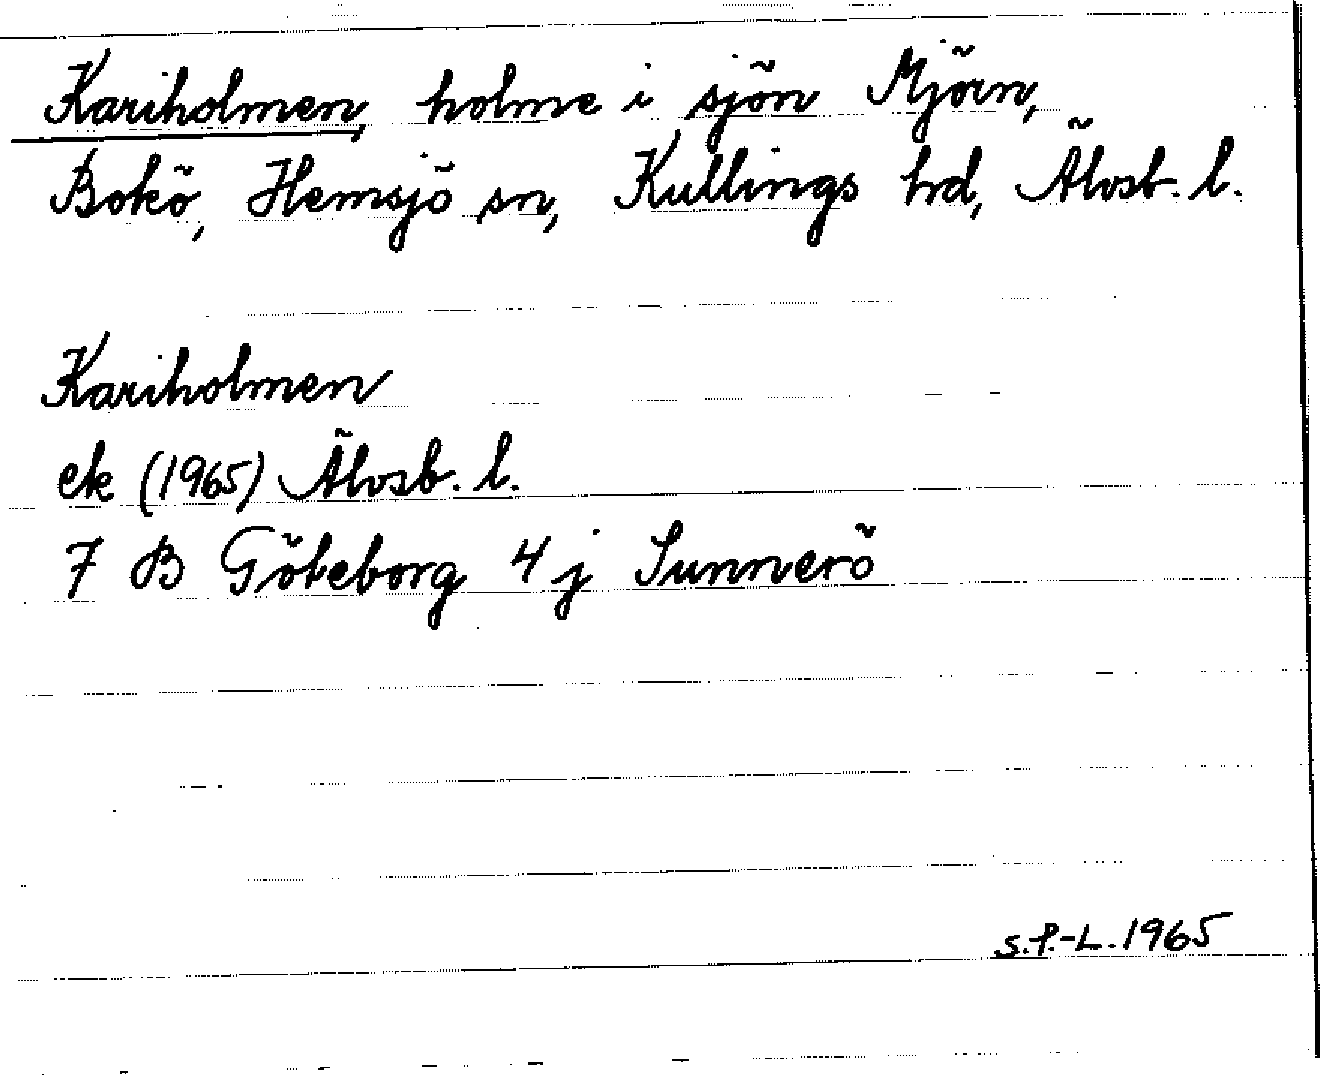 Kariholmen, holme i sjön Mjörn,
Bokö, Hemsjö sn, Kullings hd, Älvsb. l.
Kariholmen
ek (1965) Älvsb. l.
7 B Göteborg 4 j Sunnerö
S.P.-L. 1965